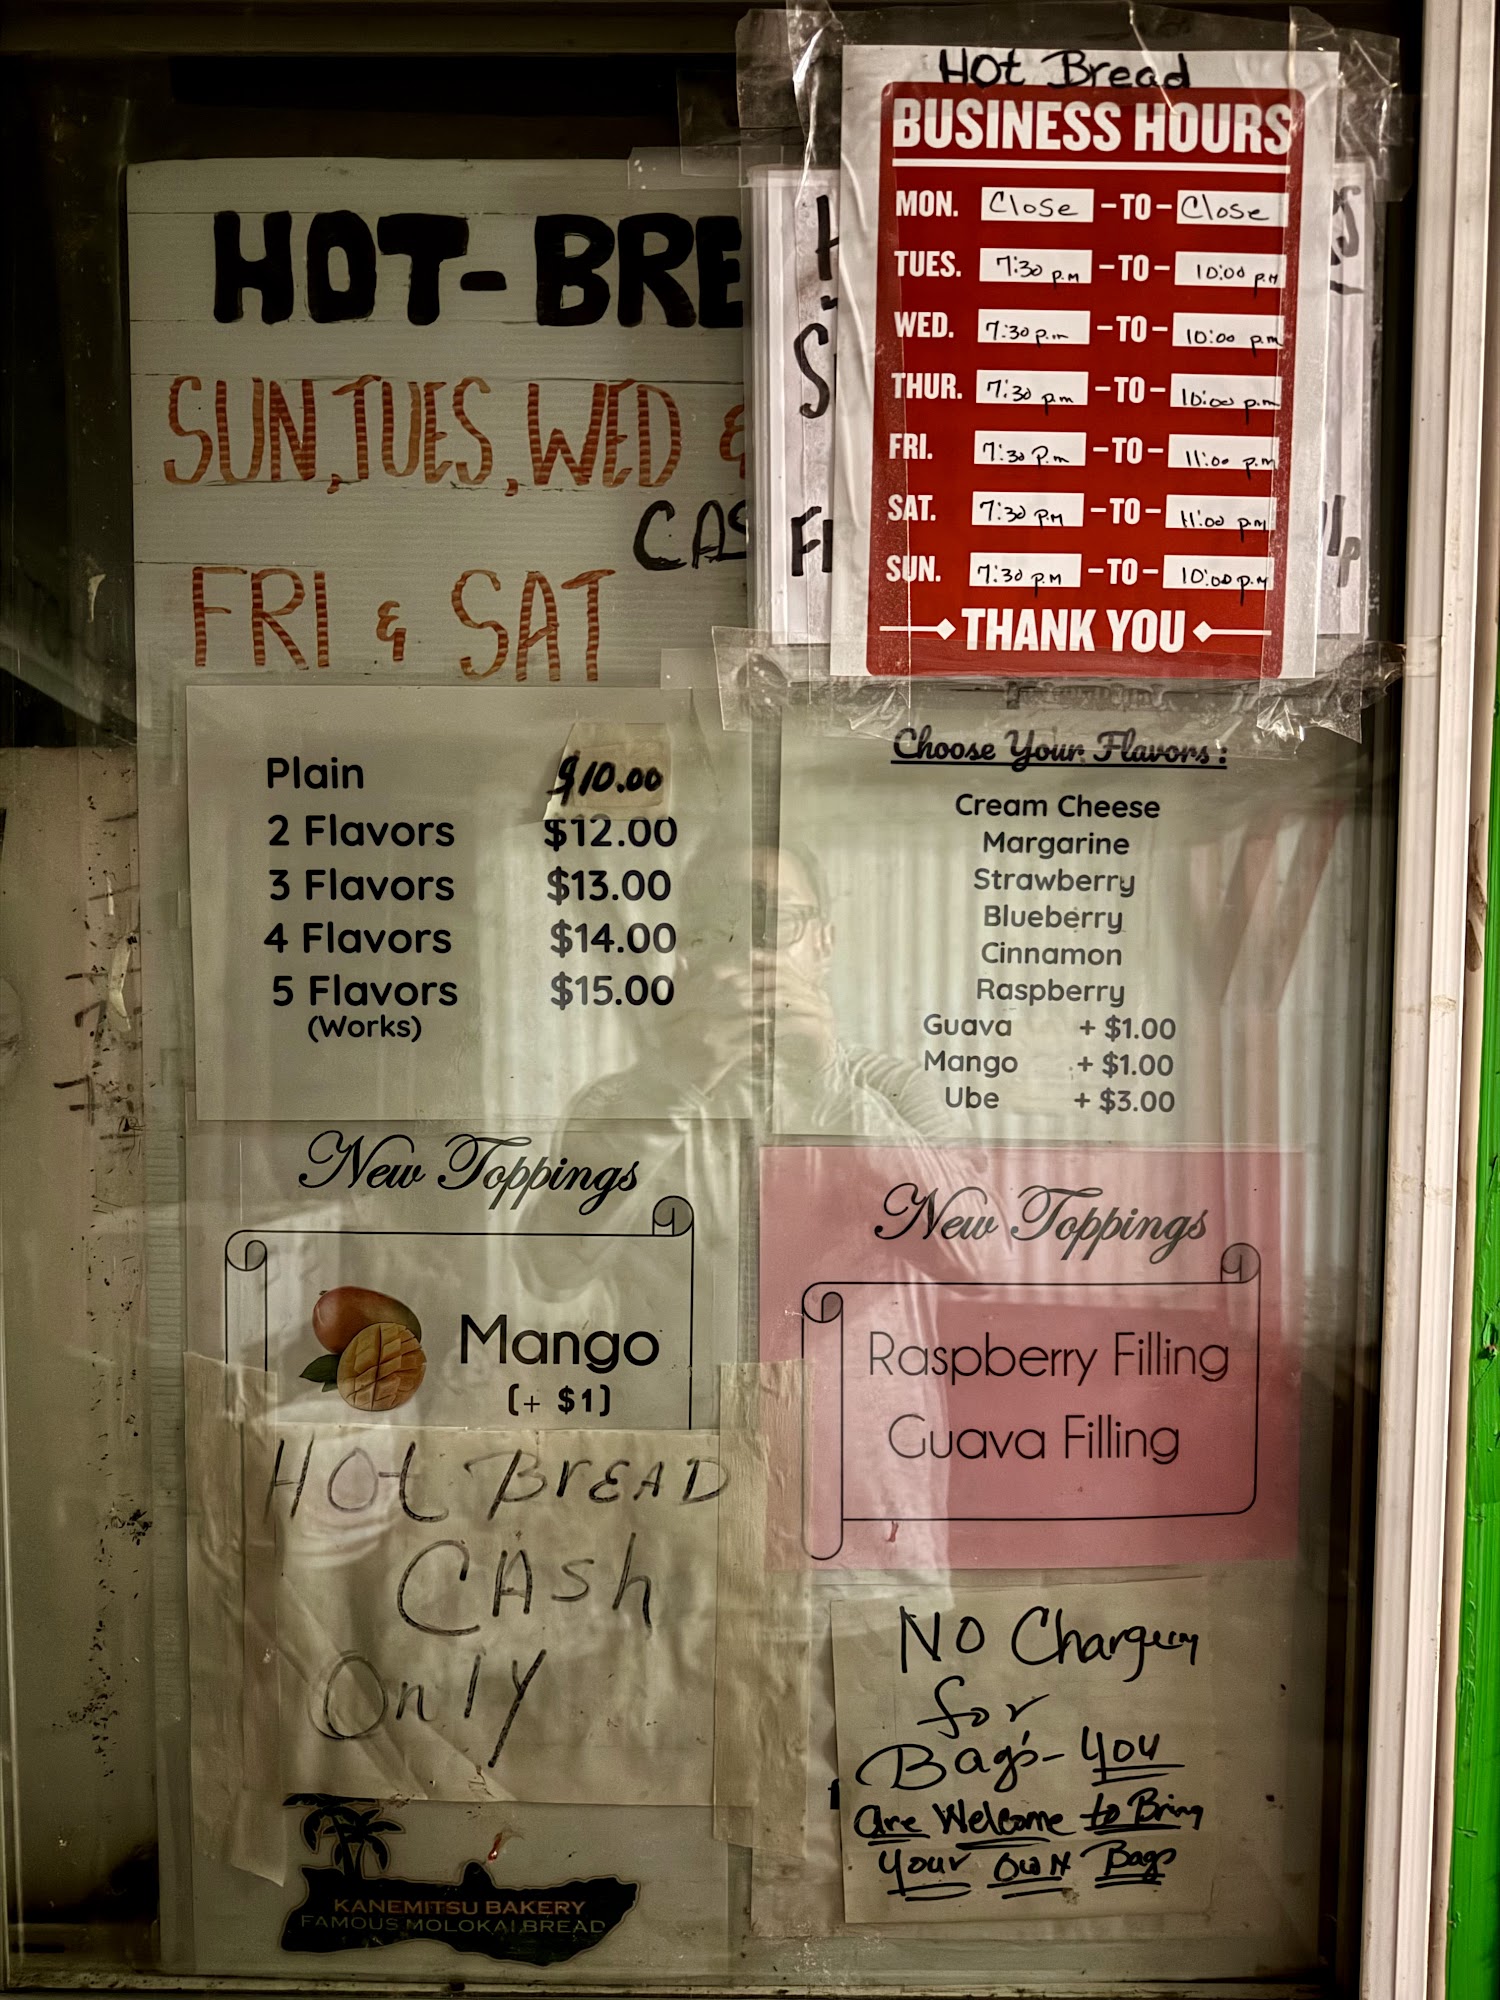 Hot Bread
BUSINESS HOURS
MON. Close - TO - Close
TUES. 7:30 p.m - TO - 10:00 p.m
WED. 7:30 p.m - TO - 10:00 p.m
THUR. 7:30 p.m - TO - 10:00 p.m
FRI. 7:30 p.m - TO - 11:00 p.m
SAT. 7:30 p.m - TO - 11:00 p.m
SUN. 7:30 p.m - TO - 10:00 p.m
THANK YOU
HOT-BRE
SUN, TUES, WED &
CAS
FRI & SAT
Plain $10.00
2 Flavors $12.00
3 Flavors $13.00
4 Flavors $14.00
5 Flavors $15.00
(Works)
Choose Your Flavors:
Cream Cheese
Margarine
Strawberry
Blueberry
Cinnamon
Raspberry
Guava + $1.00
Mango + $1.00
Ube + $3.00
New Toppings
Mango
(+ $1)
New Toppings
Raspberry Filling
Guava Filling
Hot BREAD
CASh
Only
NO Charging
for
Bag's - You
are Welcome to Bring
Your OWN Bags
KANEMITSU BAKERY
FAMOUS MOLOKAI BREAD